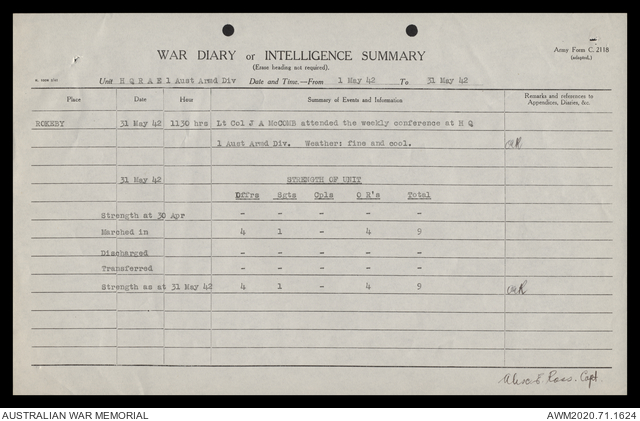 Army Form C. 2118
(adapted.)
WAR DIARY or INTELLIGENCE SUMMARY
(Erase heading not required).
Unit H Q R A E 1 Aust Armd Div Date and Time.—From 1 May 42 To 31 May 42
Place Date Hour Summary of Events and Information Remarks and references to Appendices, Diaries, &c.
ROKEBY 31 May 42 1130 hrs Lt Col J A McCOMB attended the weekly conference at H Q
1 Aust Armd Div. Weather: fine and cool.
31 May 42 STRENGTH OF UNIT
Offrs Sgts Cpls O R's Total
Strength at 30 Apr - - - - -
Marched in 4 1 - 4 9
Discharged - - - - -
Transferred - - - - -
Strength as at 31 May 42 4 1 - 4 9
Ross. Capt
AUSTRALIAN WAR MEMORIAL AWM2020.71.1624